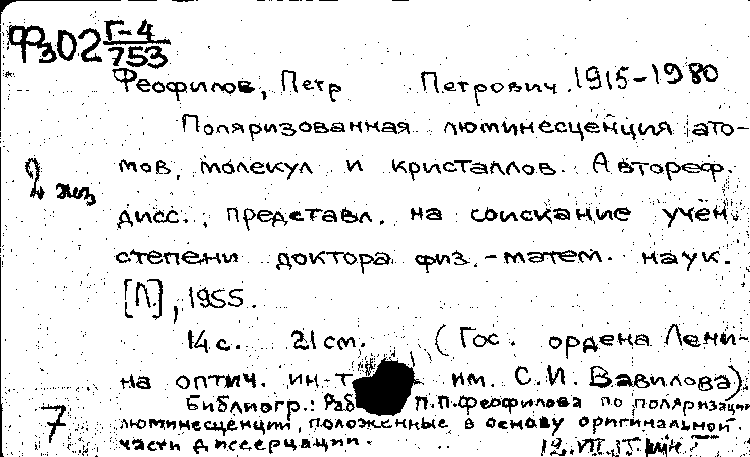 Фз02 Г-4/753
Феофилов, Петр Петрович. 1915-1980
Поляризованная люминесценция ато-
мов, молекул и кристаллов. Автореф.
2 экз
дисс., представл. на соискание учен.
степени доктора физ.-матем. наук.
[Л.], 1955.
14 с. 21 см. (Гос. ордена Лени-
на оптич. ин-т им. С.И. Вавилова).
Библиогр.: Раб П.П. Феофилова по поляризации
7
люминесценции, положенные в основу оригинальной
части диссертации.
12.VII.55